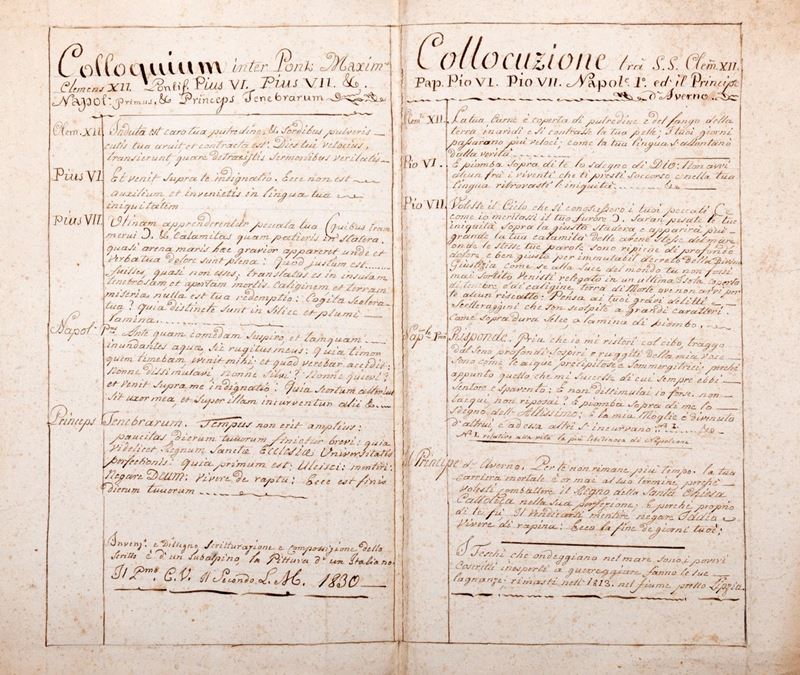 Colloquium inter Ponts Maxim.
Clemens XII. Pontif. Pius VI. Pius VII. &.
Napol: Primus, & Princeps Tenebrarum
Clem. XII. Induta est caro tua putredine, & sordibus pulveris
cutis tua aruit et contracta est: Dies tui velocius
transierunt quare detraxistis Sermonibus veritatis
Pius VI. Et venit supra te indignatio. Ecce non est
auxilium et invenietis in lingua tua
iniquitatem
Pius VII. Utinam apprenderentur peccata tua (quibus iram
merui D. & Calamitas quam patieris in statera.
quasi arena maris hæc gravior appareret unde et
verba tua dolore sunt plena: Quod justum est
fuisses, quasi non esses, translatus es in insulam
tenebrosam et apertam mortis caliginem et terram
miseriæ nulla est tua redemptio: Cogita scelera
tua? Quia distincte sunt in Silice et plumi
lamina.
Napol: Pus. Ante quam comedam suspiro et tamquam
inundantes aquæ, sic rugitus meus: Quia timor
quem timebam evenit mihi: et quod verebar accidit:
Nonne dissimulavi nonne silui? Nonne quievi?
et venit supra me indignatio: Quia scortum alterius
sit uxor mea et super illam incurventur alii &.
Princeps Tenebrarum. Tempus non erit amplius:
paucitas dierum tuorum finietur brevi: quia
videlicet Regnum Sanctæ Ecclesiæ Universitatis
perfectionis: quia primum est: Ulcisci: mentiri:
negare Deum: vivere de raptu: Ecce est finis
dierum tuorum
Invenz. e Disegno, Scritturazione e composizione dello
Scritto è d'un Subalpino la Pittura d'un Italiano.
Il Pmo. C. V. Il Secondo. L. M. 1830
Collocuzione trai S.S. Clem. XII.
Pap. Pio VI. Pio VII. Napole. Io. ed il Principe
d'Averno.
Clemte. XII. La tua Carne è coperta di putredine e del fango della
terra inaridì e si contrasse la tua pelle; I tuoi giorni
passarano più veloci; come la tua lingua s'allontanò
dalla verità
Pio VI. E piomba sopra di te lo sdegno di Dio: Non avvi
alcun fra i viventi che ti presti soccorso e nella tua
lingua ritrovasti l'iniquità
Pio VII. Volesse il Cielo che si conoscessero i tuoi peccati (
come io meritassi il tuo furore D. Saran pesate le tue
iniquità sopra la giusta stadera e apparirà più
grande la tua calamità delle arene stesse del mare
onde le stesse tue parole sono ripiene di profondo
dolore e ben giusto per immutabil decreto della Divina
Giustizia come se alla luce del mondo tu non fossi
mai sortito Venisti relegato in un ultima Isola aperta
di tenebre, e di caligine, terra di Morte ove non avvi per
te alcun riscatto: Pensa ai tuoi gravi delitti
Scelleraggini che son scolpite a grandi caratteri
Come sopra dura Selce, o lamina di piombo.
Risponde. Pria che io mi ristori col cibo, traggo
dal seno profondi sospiri e ruggiti della mia voce
sono come le acque precipitose e sommergitrici; perchè
appunto quello che mi successe di cui sempre ebbi
sentore e spavento: e non dissimulai io forse. non
tacqui non riposai? E piomba sopra di me lo
sdegno dell'Altissimo; è la mia Moglie è divenuta
d'altrui, e adessa altri s'incurvano. N. 1.
No. 1. relativo alla vita la più licenziosa di Napoleone
Il Principe d'Averno. Per te non rimane più tempo: la tua
carriera mortale è or mai al suo termine perchè
volesti combattere il Regno della Santa Chiesa
Cattolica nella sua perfezione; E perche proprio
di te fu: Il Vendicarti mentire negare Iddio e
Vivere di rapina: Ecco la fine de giorni tuoi;
I Teschi che ondeggiano nel mare sono i poveri
Coscritti inesperti a guerreggiare fanno le sue
lagnanze: rimasti nell'1813. nel fiume presso Lipzia.